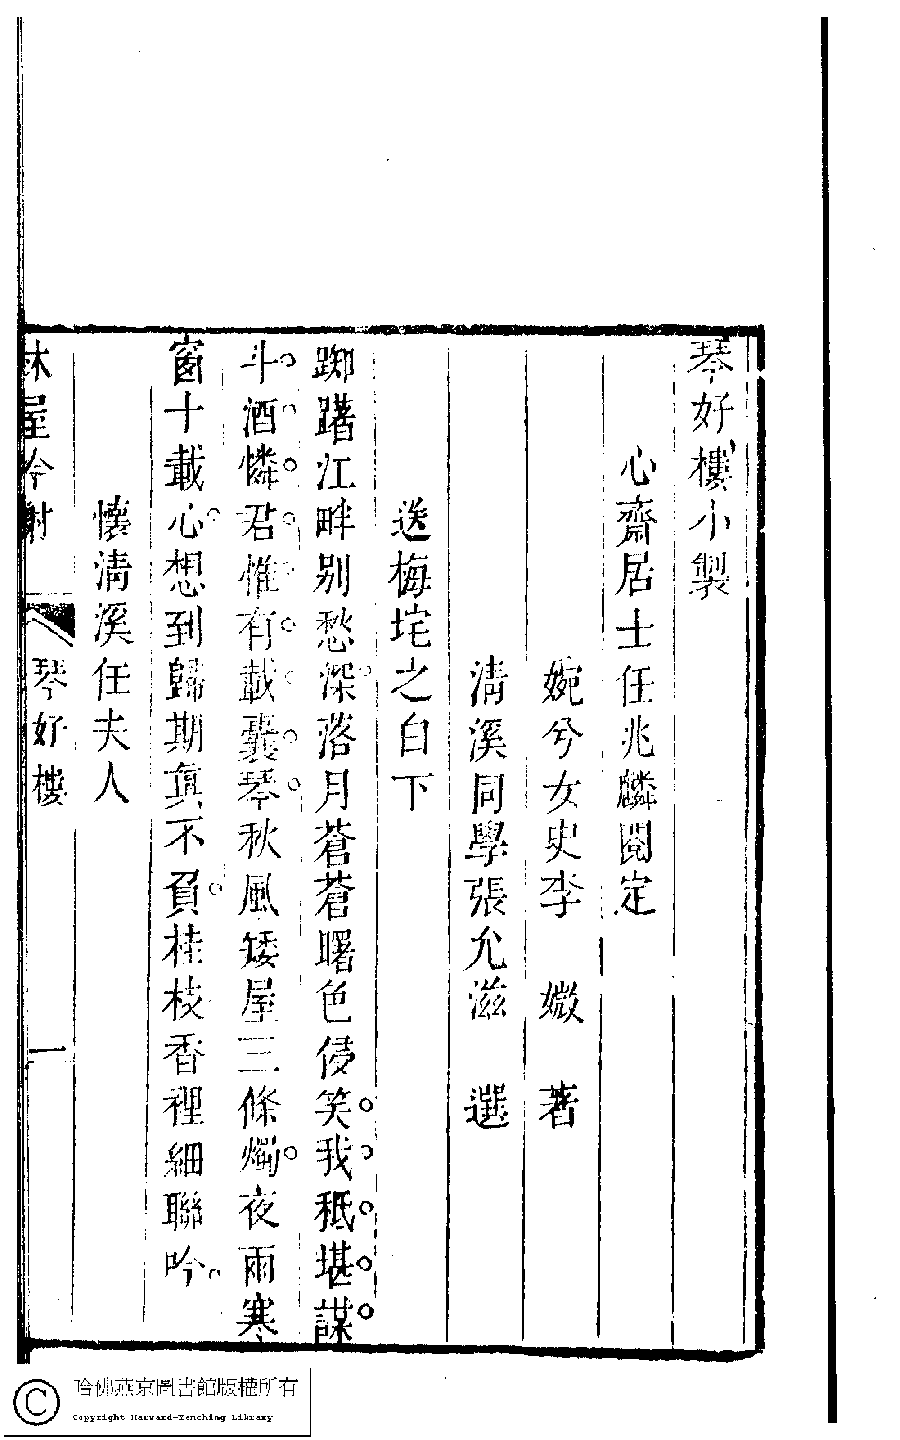 琴好樓小製
心齋居士任兆麟閱定
婉兮女史李 媺 著
清溪同學張允滋 選
送梅坨之白下
踟躇江畔別愁深落月蒼蒼曙色侵笑我秪堪謀
斗酒憐君惟有載囊琴秋風矮屋三條燭夜雨寒
窗十載心想到歸期眞不負桂枝香裡細聯吟
懷清溪任夫人
林屋吟榭
琴好樓
一
哈佛燕京圖書館版權所有
Copyright Harvard-Yenching Library